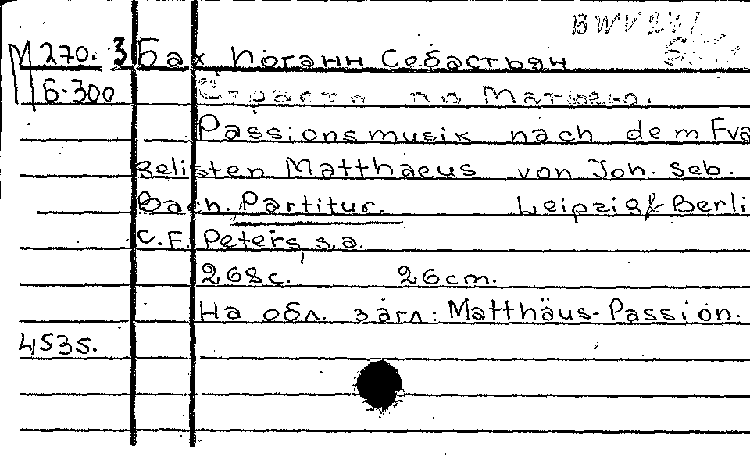 BWV 244
М 270. 3 Бах Иоганн Себастьян
Б-300 Страсти по Матфею.
Passionsmusik nach dem Eva
gelisten Matthaeus von Joh. Seb.
Bach. Partitur. Leipzig & Berli
C. F. Peters, s. a.
268 с. 26 cm.
На обл. загл: Matthäus-Passion.
4535.